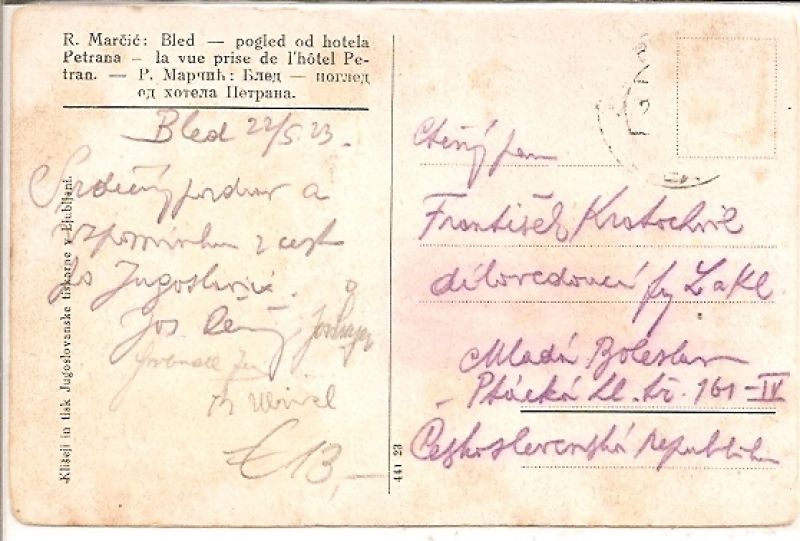 R. Marčić: Bled — pogled od hotela
Petrana — la vue prise de l'hôtel Pe-
tran. — Р. Марчић: Блед — поглед
од хотела Петрана.
Bled 22/5 23.
Srdečný pozdrav a
vzpomínku z cest
po Jugoslavii.
Jos
€ 13,-
Klišeji in tisk Jugoslovanske tiskarne v Ljubljani.
441 23
Ctěný pan
František Kratochvíl
dílovedoucí fy L&Kl.
Mladá Boleslav
Ptácká ul. čp. 161-IV
Československá Republika